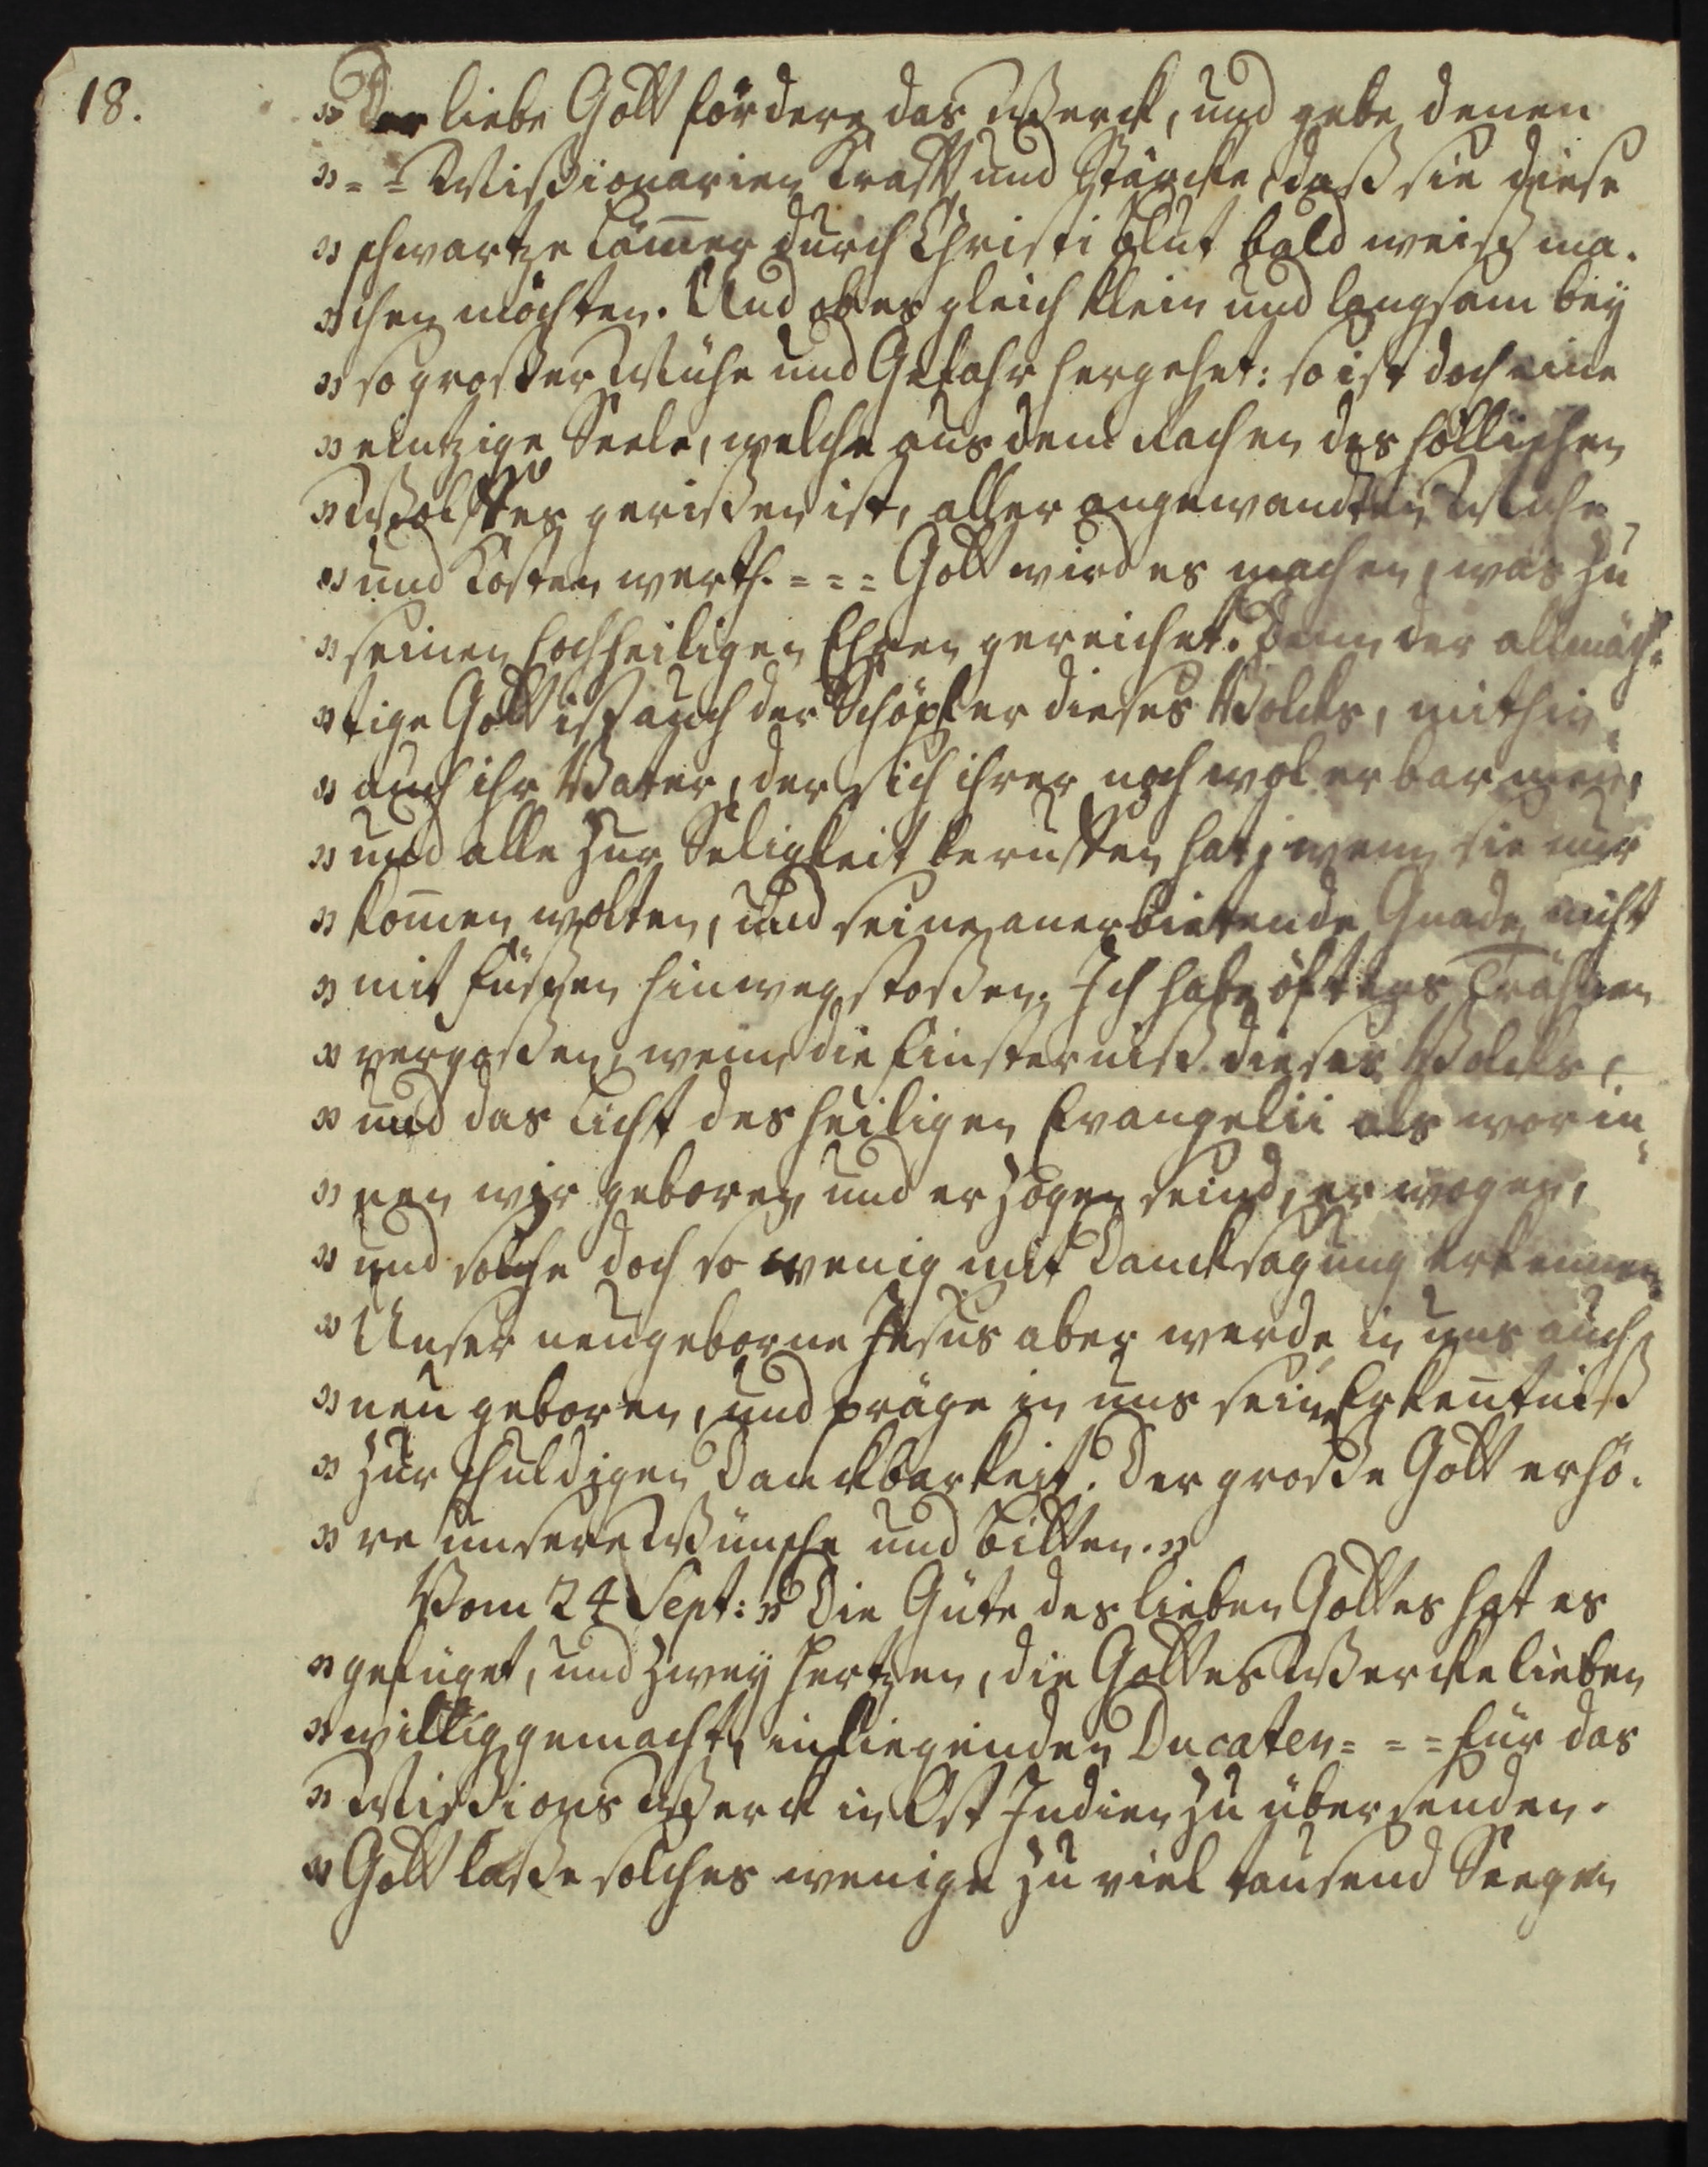 18.
" Der liebe Gott fördere das Werck, und gebe denen
" = = Missionarien Krafft und Stärcke, daß sie diese
" schwartze Lämer durch Christi Blut bald weiß ma-
" chen möchten. Und ob es gleich klein und langsam bey
" so großer Mühe und Gefahr hergehet: so ist doch eine
" eintzige Seele, welche aus dem Rachen des höllischen
" Wolffes gerißen ist, aller angewandten Mühe
" und Kosten werth. = = = Gott wird es machen, was zu
" seinen hochheiligen Ehren gereichet. Denn der allmäch-
" tige Gott ist auch der Schöpfer dieses Volcks, mithin
" auch ihr Vater, der sich ihrer noch wol erbarmen,
" und alle zur Seligkeit beruffen hat, wenn sie nur
" komen wolten, und seine anerbietende Gnade nicht
" mit Füßen hinweg stoßen. Ich habe öfters Trähnen
" vergoßen, wenn die Finsterniß dieses Volcks,
" und das Licht des heiligen Evangelii als worin-
" nen wir geboren und erzogen seind, erwogen,
" und solche doch so wenig mit Dancksagung erkennen.
" Unser neugeborne Jesus aber werde in uns auch
" neu geboren, und präge in uns seine Erkentniß
" zur schuldigen Danckbarkeit. Der große Gott erhö-
" re unsere Wünsche und Bitten. "
Vom 24 Sept: " Die Güte des lieben Gottes hat es
" gefüget, und zwey Hertzen, die Gottes Wercke lieben
" willig gemacht, inliegenden Ducaten = = = für das
" Missions Werck in Ost Indien zu übersenden.
" Gott laße solches wenige zu viel tausend Seegen